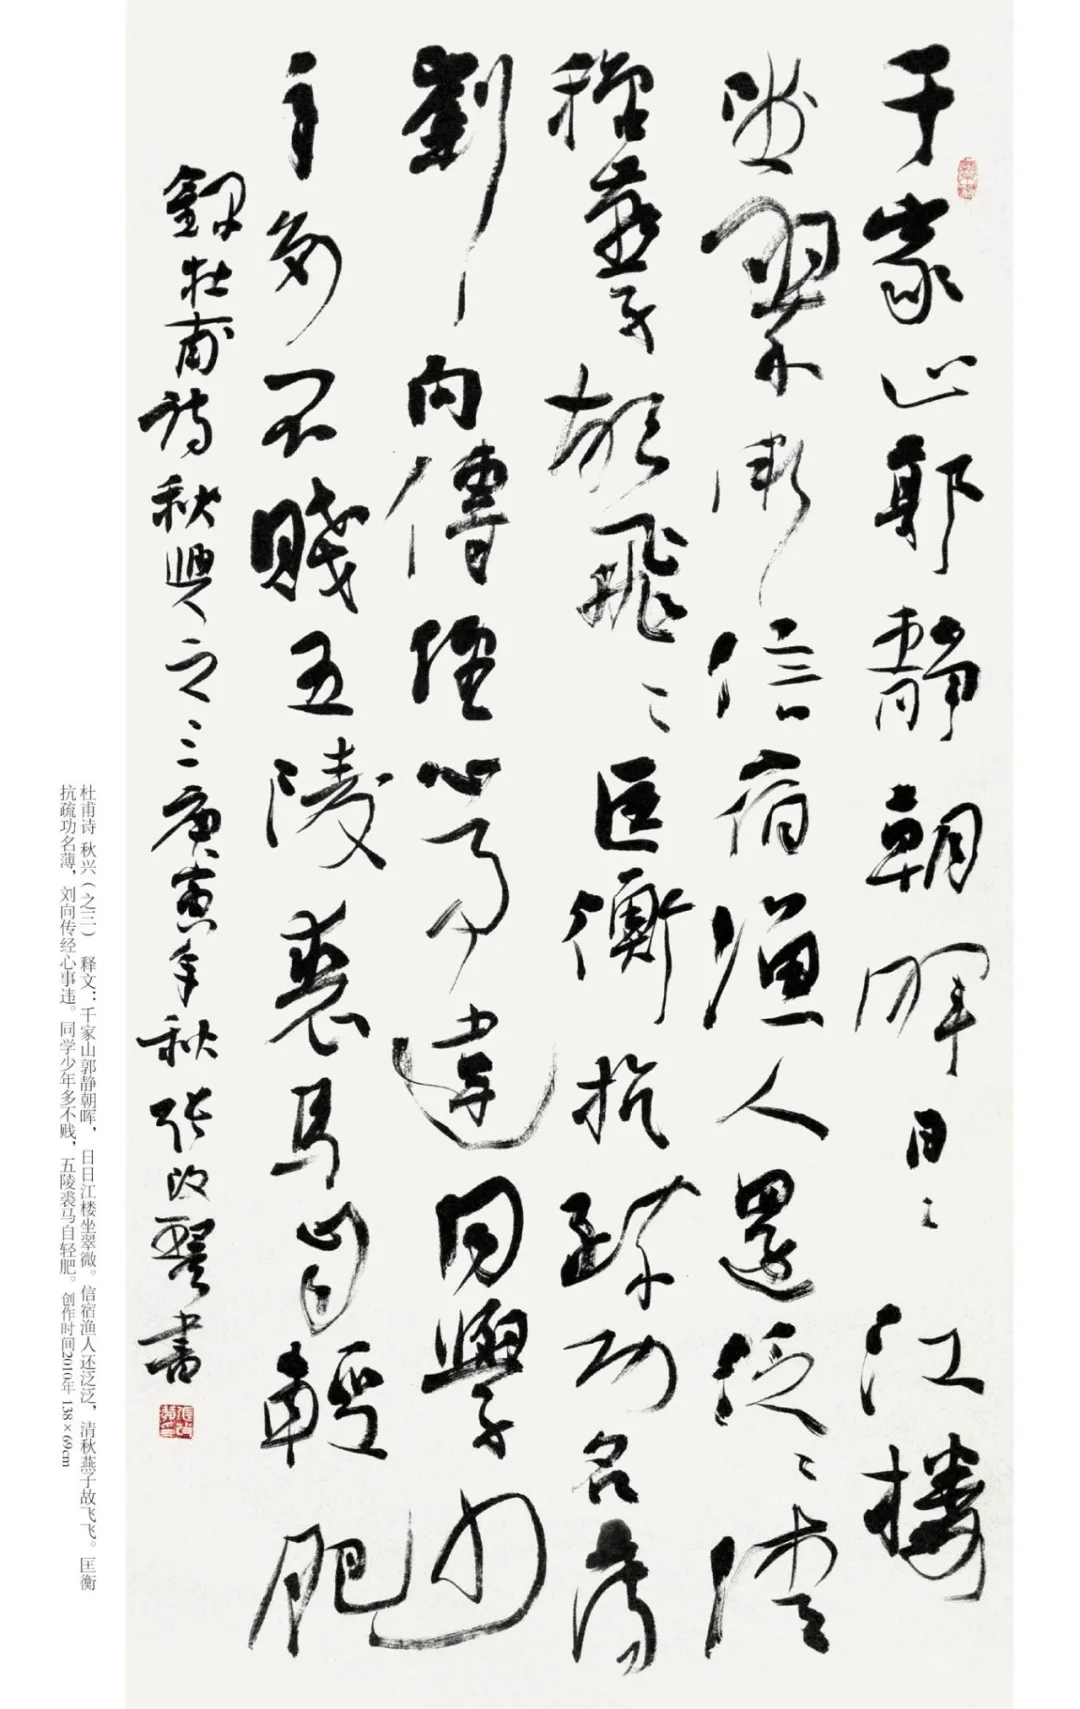 千家山郭靜朝暉日〻江樓
坐翠微信宿漁人還泛〻清
穐燕子故飛〻匡衡抗疏功名薄
劉向傳經心事違同學少
年多不賤五陵裘馬自輕肥
錄杜甫詩秋興之三庚寅年秋張改琴書
杜甫诗 秋兴（之三） 释文：千家山郭静朝晖，日日江楼坐翠微。信宿渔人还泛泛，清秋燕子故飞飞。匡衡
抗疏功名薄，刘向传经心事违。同学少年多不贱，五陵裘马自轻肥。创作时间2010年 138×69cm